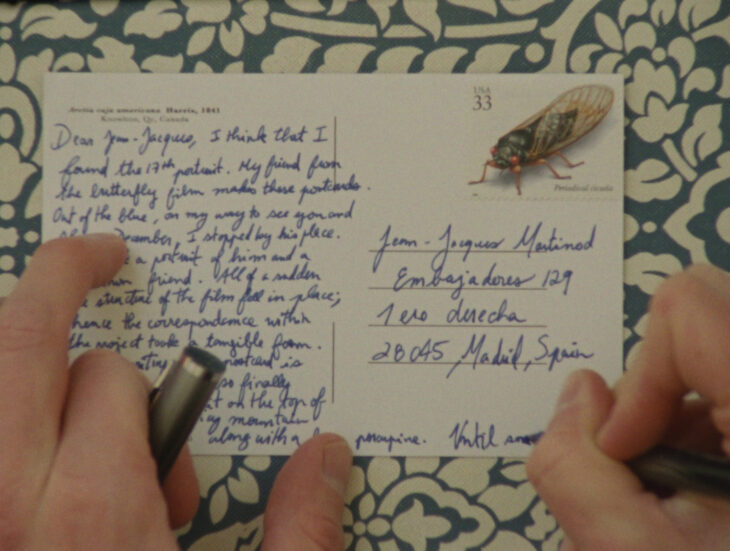 Arctia caja americana Harris, 1841
Knowlton, Qc, Canada
Dear Jean-Jacques, I think that I
found the 17th portrait. My friend from
the butterfly film makes these postcards.
Out of the blue, on my way to see you and
December, I stopped by his place.
a portrait of him and a
friend. All of a sudden
structure of the film fell in place;
hence the correspondence within
the project took a tangible form.
postcard is
so finally
on the top of
mountain
along with a porcupine. Until
USA
33
Periodical cicada
Jean-Jacques Martinod
Embajadores 129
1ero derecha
28045, Madrid, Spain